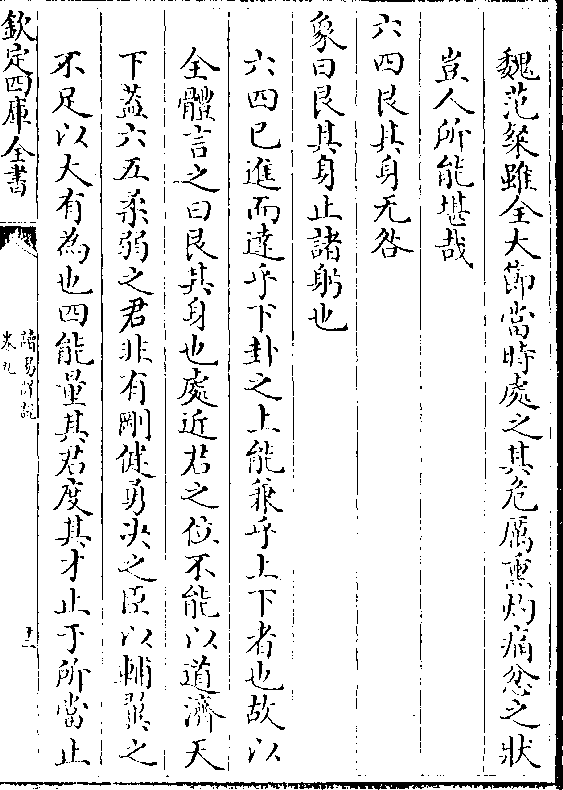 魏范粲雖全大節當時處之其危厲熏灼痛忿之狀
豈人所能堪哉
六四艮其身无咎
象曰艮其身止諸躬也
六四已進而達乎下卦之上能兼乎上下者也故以
全體言之曰艮其身也處近君之位不能以道濟天
下蓋六五柔弱之君非有剛健勇决之臣以輔翼之
不足以大有為也四能量其君度其才止于所當止
欽定四庫全書
讀易詳說
卷九
十二